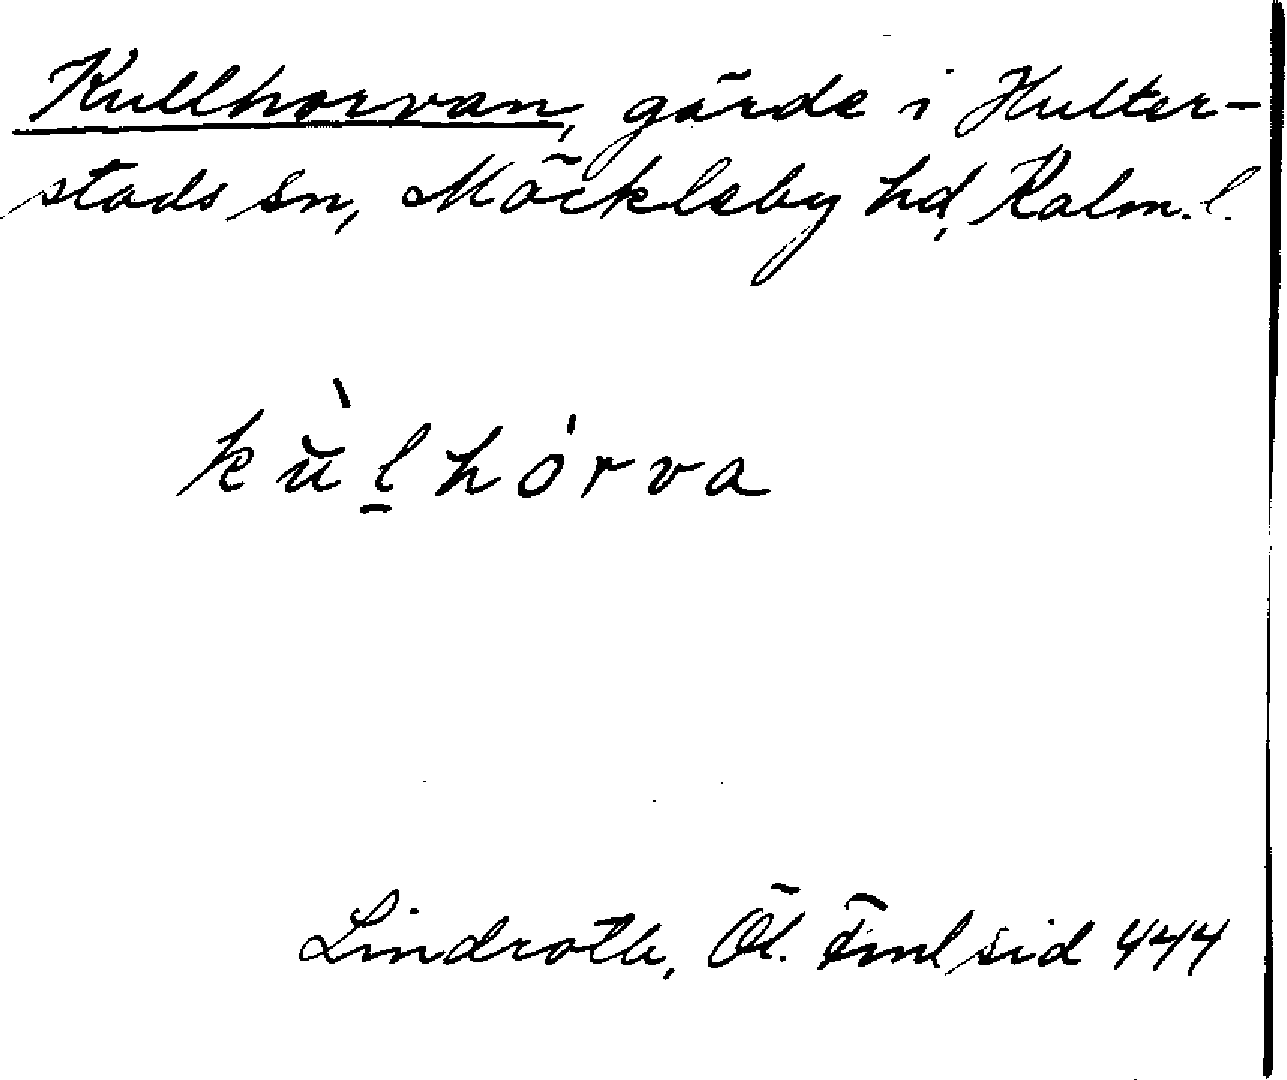 Kullhorvan, gärde i Hulter-
stads sn, Möckleby hd, Kalm. l.
kù̆l̠hórva
Lindroth, Öl. Fml sid 444